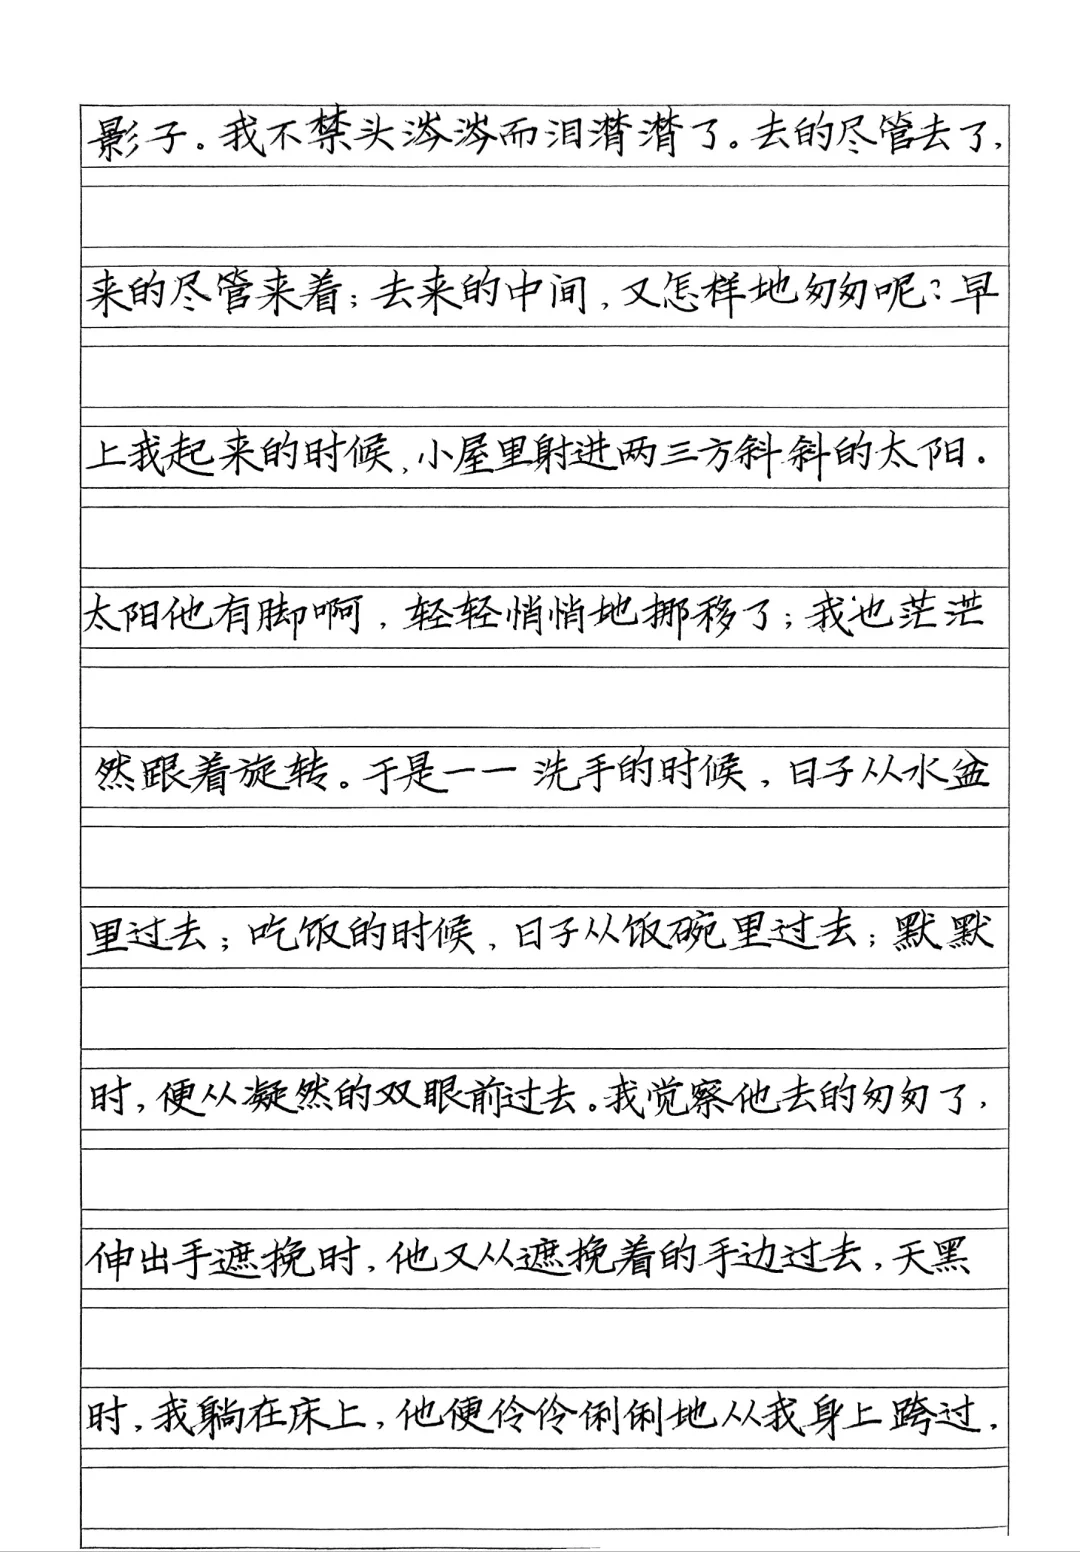 影子。我不禁头涔涔而泪潸潸了。去的尽管去了,
来的尽管来着;去来的中间,又怎样地匆匆呢?早
上我起来的时候,小屋里射进两三方斜斜的太阳.
太阳他有脚啊,轻轻悄悄地挪移了;我也茫茫
然跟着旋转。于是一一洗手的时候,日子从水盆
里过去;吃饭的时候,日子从饭碗里过去;默默
时,便从凝然的双眼前过去。我觉察他去的匆匆了,
伸出手遮挽时,他又从遮挽着的手边过去,天黑
时,我躺在床上,他便伶伶俐俐地从我身上跨过,